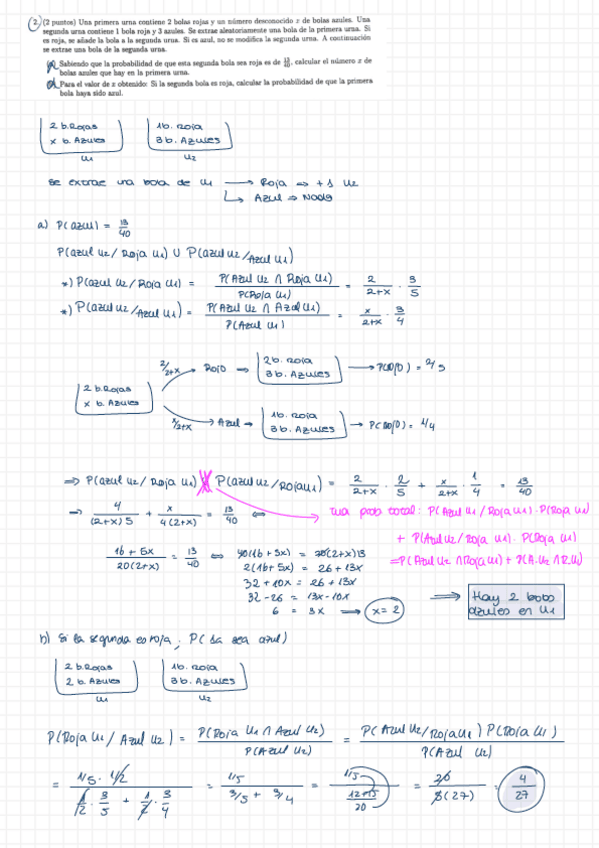 2. (2 puntos) Una primera urna contiene 2 bolas rojas y un número desconocido x de bolas azules. Una
segunda urna contiene 1 bola roja y 3 azules. Se extrae aleatoriamente una bola de la primera urna. Si
es roja, se añade la bola a la segunda urna. Si es azul, no se modifica la segunda urna. A continuación
se extrae una bola de la segunda urna.
Sabiendo que la probabilidad de que esta segunda bola sea roja es de 13/40, calcular el número x de
bolas azules que hay en la primera urna.
Para el valor de x obtenido: Si la segunda bola es roja, calcular la probabilidad de que la primera
bola haya sido azul.
2 b. Rojas
x b. Azules
U1
1b. Roja
3b. Azules
U2
se extrae una bola de U1 → Roja ⇒ +1 U2
↳ Azul ⇒ Nada
a) P(azul) = 13/40
P(azul U2 / Roja U1) ∪ P(azul U2 / Azul U1)
*) P(azul U2 / Roja U1) = P(Azul U2 ∩ Roja U1) / P(Roja U1) = 2/(2+x) · 3/5
*) P(azul U2 / Azul U1) = P(Azul U2 ∩ Azul U1) / P(Azul U1) = x/(2+x) · 3/4
2 b. Rojas
x b. Azules
2/(2+x) → Rojo ⇒ 2b. Roja
3b. Azules → P(Rojo) = 2/5
x/(2+x) → Azul → 1b. Roja
3b. Azules → P(Rojo) = 1/4
⇒ P(azul U2 / Roja U1) P(azul U2 / Roja U1) = 2/(2+x) · 2/5 + x/(2+x) · 1/4 = 13/40
→ 4/((2+x)5) + x/(4(2+x)) = 13/40 ⇔
prob total: P(Azul U2 / Roja U1) · P(Roja U1)
+ P(Azul U2 / Roja U1) · P(Roja U1)
= P(Azul U2 ∩ Roja U1) + P(A. U2 ∩ R. U1)
(16 + 5x)/(20(2+x)) = 13/40 ⇔ 40(16+5x) = 20(2+x)13
2(16+5x) = 26+13x
32+10x = 26+13x
32-26 = 13x-10x
6 = 3x → x = 2
→ Hay 2 bolas
azules en U1
b) Si la segunda es roja, P(1a sea azul)
2 b. Rojas
2 b. Azules
U1
1b. Roja
3b. Azules
U2
P(Roja U1 / Azul U2) = P(Roja U1 ∩ Azul U2) / P(Azul U2) = P(Azul U2 / Roja U1) P(Roja U1) / P(Azul U2)
= (1/5 · 1/2) / (1/2 · 3/5 + 1/2 · 3/4) = (1/5) / (3/5 + 3/4) = (1/5) / ((12+15)/20) = 20/(5(27)) = 4/27